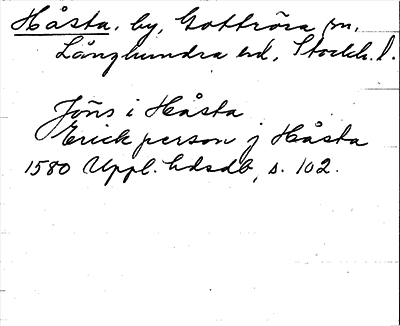 Håsta, by, Gottröra sn,
Långhundra hd, Stockh. l.
Jöns i Håsta
Erick person j Håsta
1580 Uppl. hdsdb, s. 102.